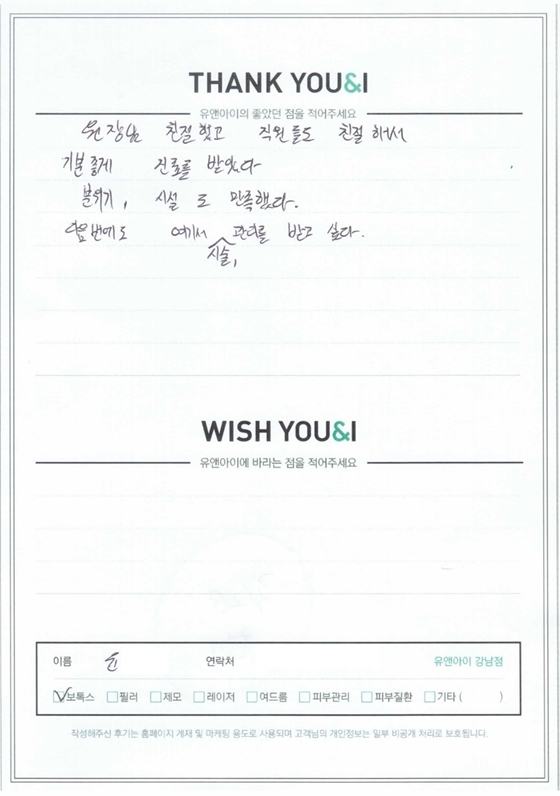 THANK YOU&I
유앤아이의 좋았던 점을 적어주세요
원장님 친절했고 직원들도 친절해서
기분 좋게 진료를 받았다
분위기, 시설도 만족했다.
다음번에도 여기서 관리를 받고 싶다.
시술,
WISH YOU&I
유앤아이에 바라는 점을 적어주세요
이름 윤 연락처 유앤아이 강남점
보톡스 필러 제모 레이저 여드름 피부관리 피부질환 기타 ( )
작성해주신 후기는 홈페이지 게재 및 마케팅 용도로 사용되며 고객님의 개인정보는 일부 비공개 처리로 보호됩니다.